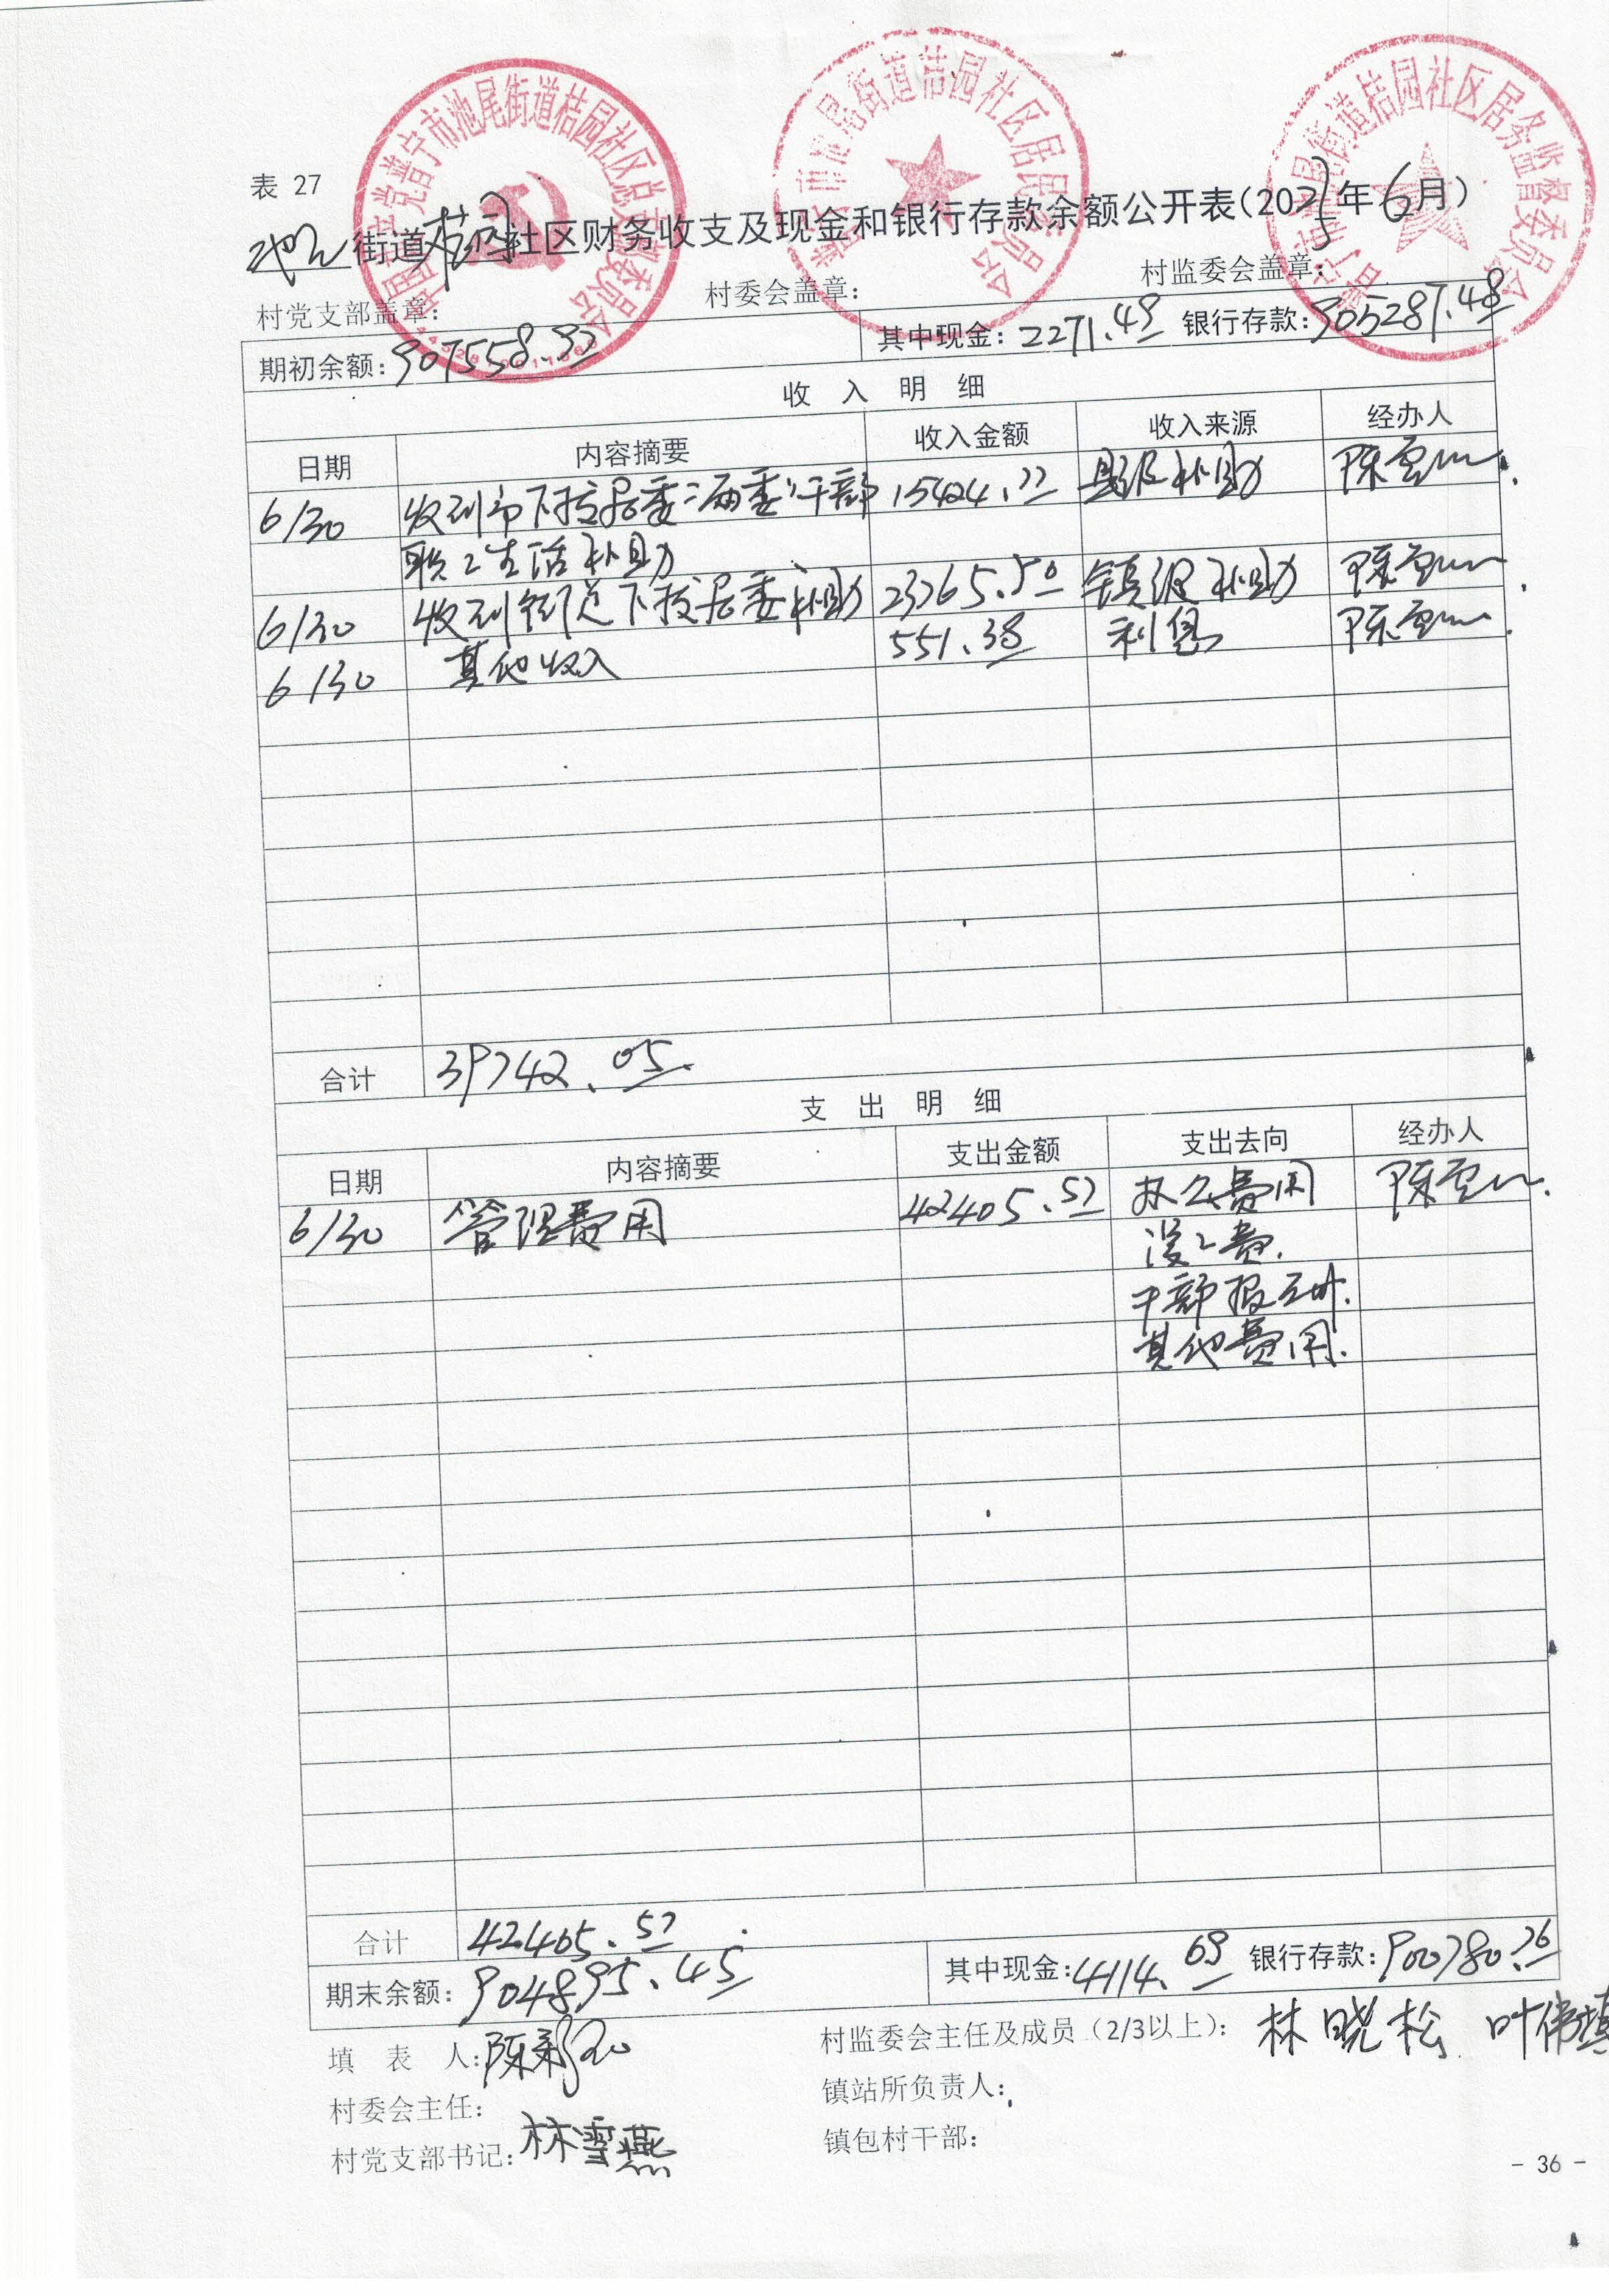 表 27
池尾街道桔园社区财务收支及现金和银行存款余额公开表(2025年6月)
村党支部盖章: 村委会盖章: 村监委会盖章:
期初余额: 907558.97 其中现金: 2271.49 银行存款: 905287.48
收 入 明 细
日期 内容摘要 收入金额 收入来源 经办人
6/30 收到市下拨居委"两委"干部 15424.77 县级补助 陈
职工生活补助
6/30 收到街道下拨居委补助 23765.50 镇级补助 陈
6/30 其他收入 551.78 利息 陈
合计 39742.05
支 出 明 细
日期 内容摘要 支出金额 支出去向 经办人
6/30 管理费用 42405.57 办公费用 陈
误工费.
干部报酬.
其他费用.
合计 42405.57
期末余额: 904895.45 其中现金: 4114.69 银行存款: 900780.76
填 表 人: 陈 村监委会主任及成员(2/3以上): 林晓松 叶伟
村委会主任: 镇站所负责人:
村党支部书记: 林雪燕 镇包村干部:
- 36 -